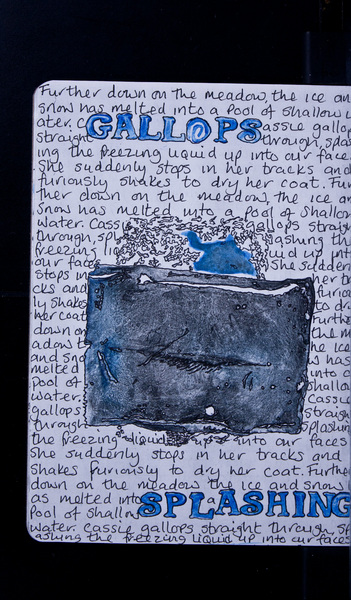 Further down on the meadow, the ice an
snow has melted into a pool of shallow w
ater. C GALLOPS assie gallop
straight through, spas
ing the freezing liquid up into our face
She suddenly stops in her tracks and
furiously shakes to dry her coat. Fur
ther down on the meadow, the ice an
snow has melted into a pool of shallow
water. Cassi gallops straigh
through, spl ashing th
freezing uid up int
our faces she sudden
stops in her tr
cks and furiou
ly shakes to dr
her coat Furthe
down on the m
adow t he Ice
and sno w has
melted into a
pool of shallow
water. Cassie
gallops straigh
through splashing
the freezing liquid up into our faces
she suddenly stops in her tracks and
shakes furiously to dry her coat. Furthe
down on the meadow the ice and snow
as melted into SPLASHING
pool of shallow
water. Cassie gallops straight through, sp
ashing the freezing liquid up into our faces